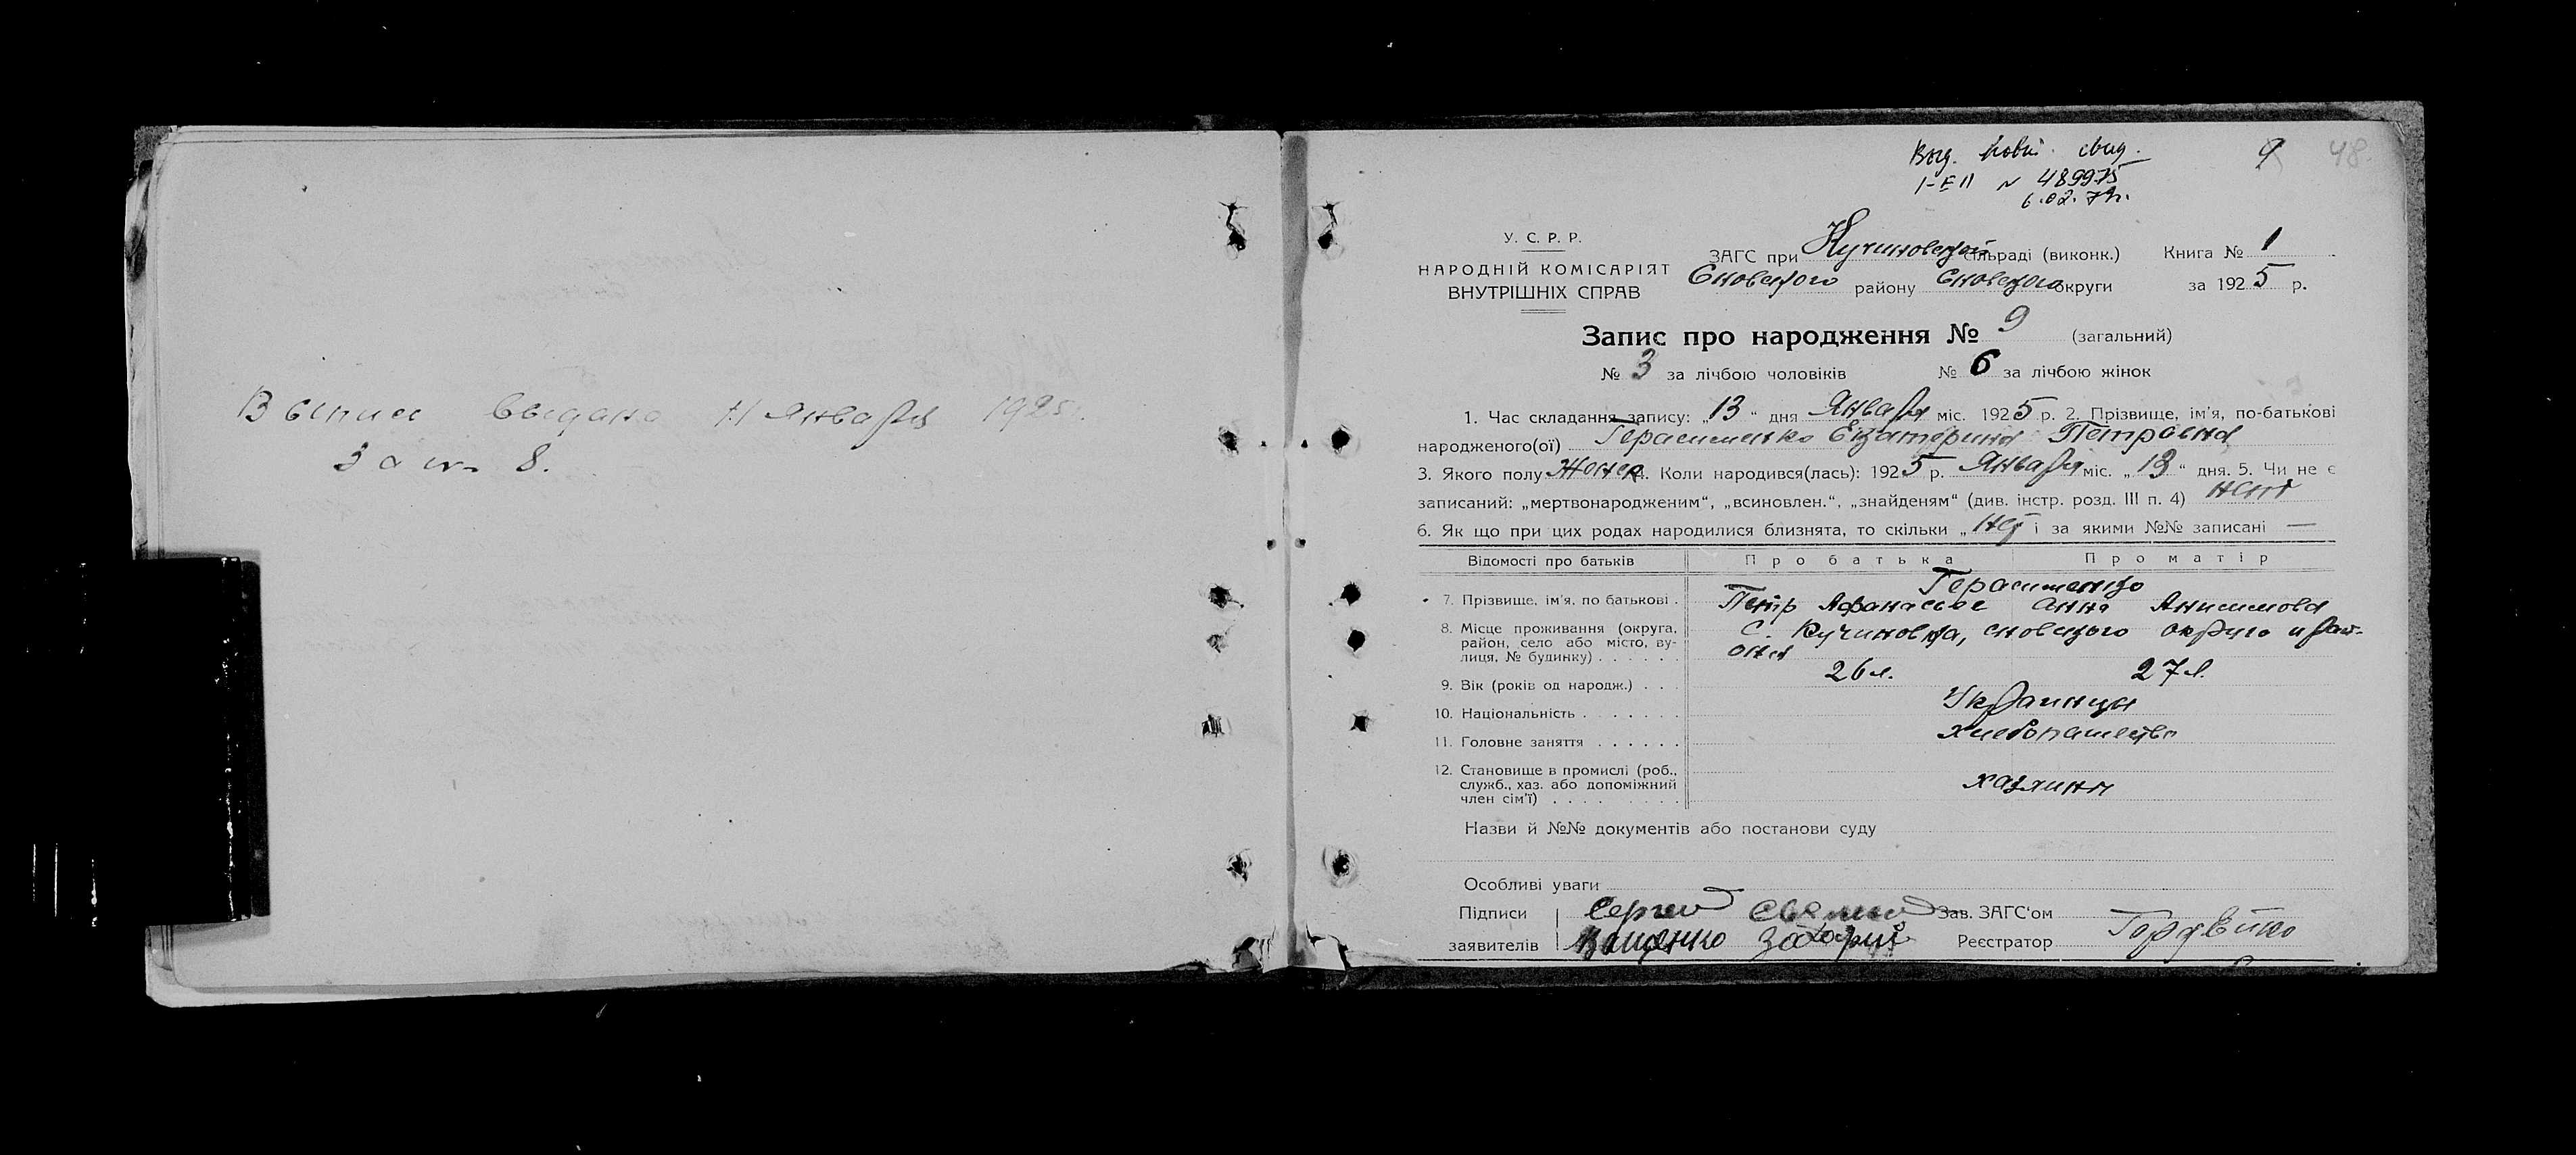 Выпись выдана 11 января 1925 г.
За № 8.
Выд. повт. свид.
I-ЕП № 489975
6.02.74г.
9 48.
У. С. Р. Р.
НАРОДНІЙ КОМІСАРІЯТ
ВНУТРІШНІХ СПРАВ
ЗАГС при Кучиновской сільраді (виконк.) Книга № 1
Сновского району Сновского округи за 1925 р.
Запис про народження № 9 (загальний)
№ 3 за лічбою чоловіків № 6 за лічбою жінок
1. Час складання запису: „13“ дня Января міс. 1925 р. 2. Прізвище, ім'я, по-батькові
народженого(ої) Герасименко Екатерина Петровна
3. Якого полу Женск 4. Коли народився(лась): 1925 р. Января міс. „13“ дня. 5. Чи не є
записаний: „мертвонародженим“, „всиновлен.“, „знайденям“ (див. інстр. розд. III п. 4) нет
6. Як що при цих родах народилися близнята, то скільки „нет і за якими №№ записані —
Відомості про батьків Про батька Про матір
Герасименко
7. Прізвище, ім'я, по батькові . Петр Афанасьев Анна Анисимова
8. Місце проживання (округа, район, село або місто, вулиця, № будинку) . . . . . . С. Кучиновка, сновского округа и рай-
она
9. Вік (років од народж.) . . . 26 л. 27 л.
10. Національність . . . . . . . Украинцы
11. Головне заняття . . . . . . хлебопашество
12. Становище в промислі (роб.,
служб., хаз. або допоміжний
член сім'ї) . . . . . . . . . хазяины
Назви й №№ документів або постанови суду
Особливі уваги
Підписи Сергей Зав. ЗАГС'ом
заявителів Ващенко Захарий Реєстратор